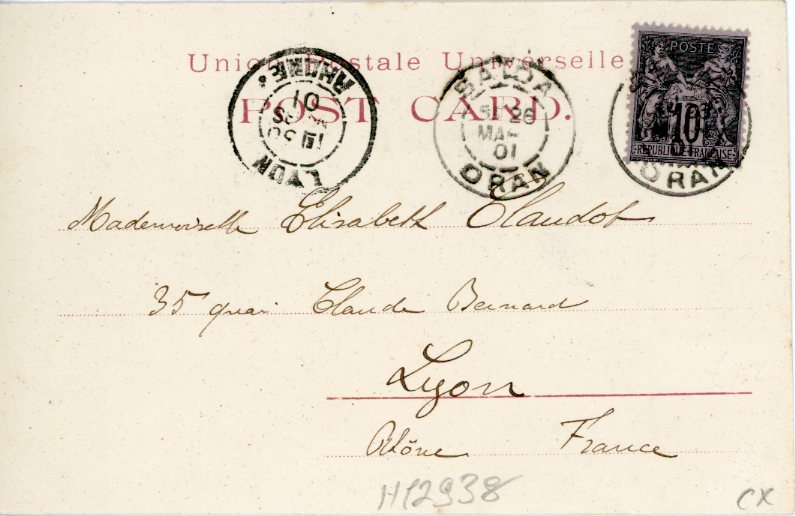 Union Postale Universelle
POST CARD.
LYON RHONE 01
SAIDA 26 MAR 01 ORAN
POSTE
10
REPUBLIQUE FRANÇAISE
ORAN
Mademoiselle Elisabeth Claudot
35 quai Claude Bernard
Lyon
Rhône France
H12938
CX